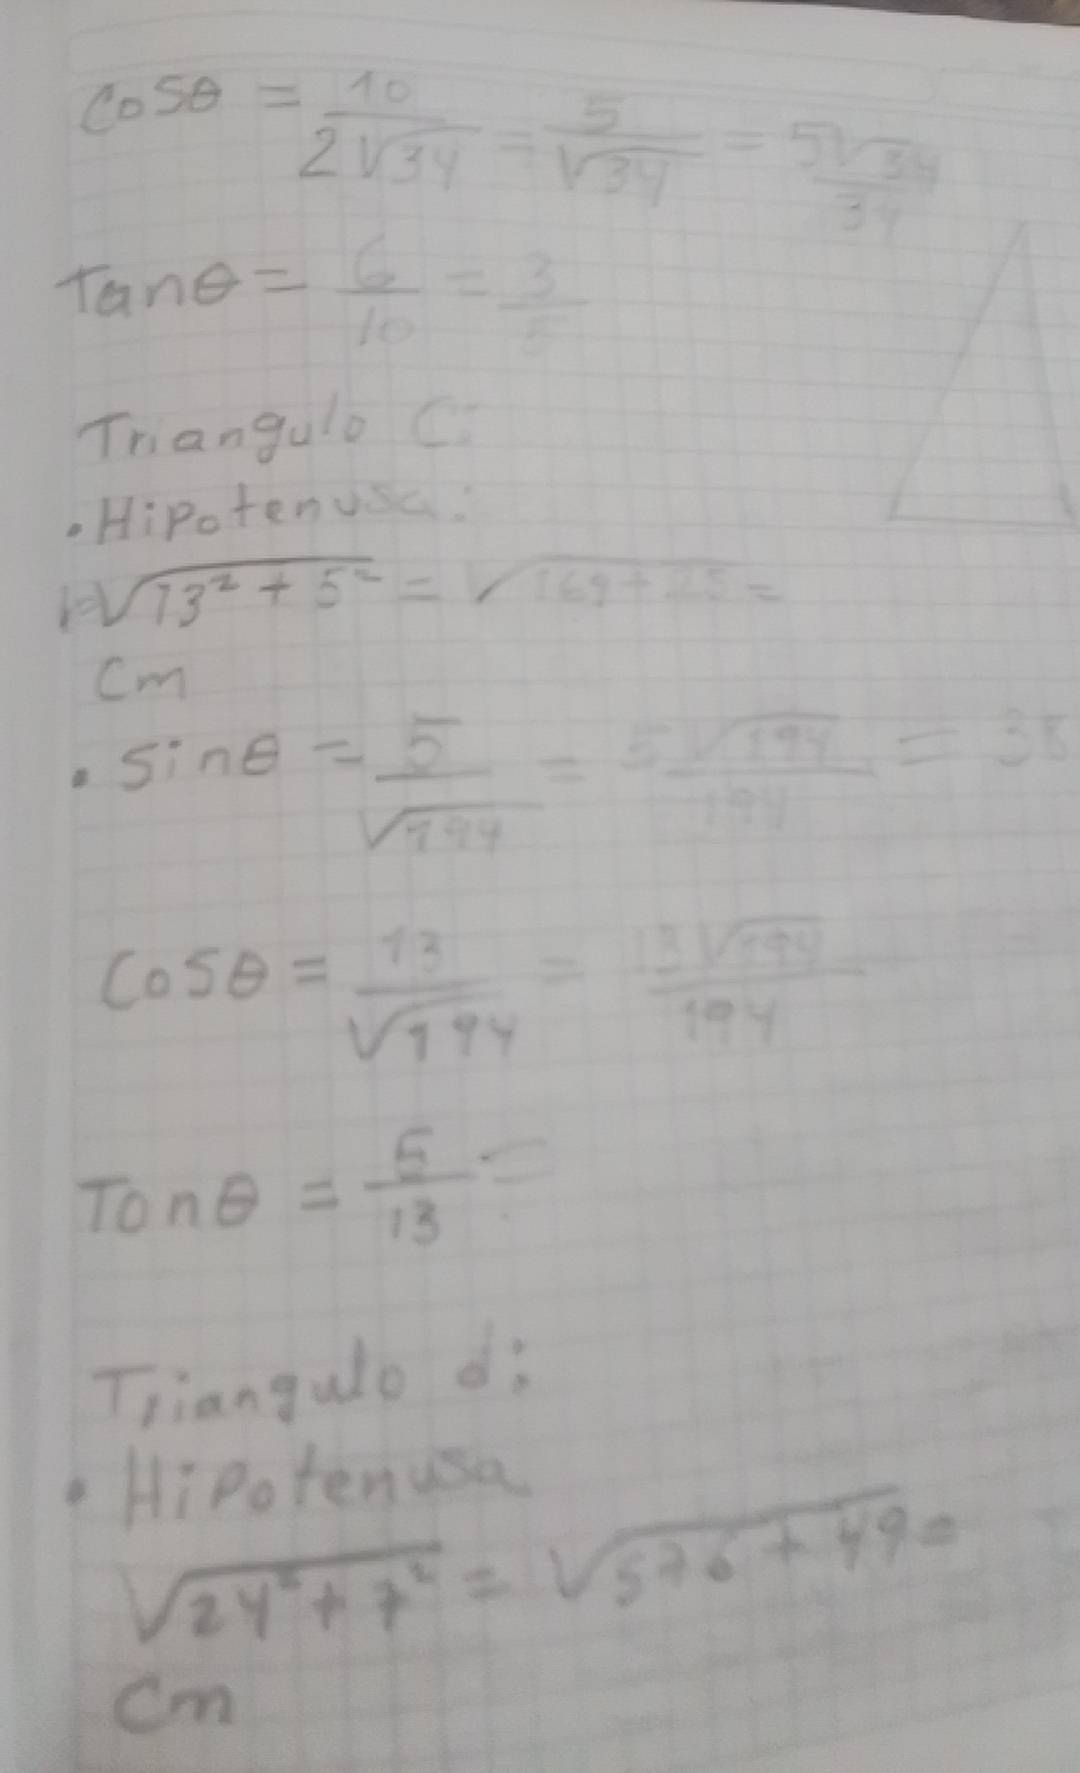 Cosθ = 10/2√34 = 5/√34 = 5√34/34
Tanθ = 6/10 = 3/5
Triangulo C:
• Hipotenusa:
√13² + 5² = √169 + 25 =
Cm
• sinθ = 5/√194 = 5√194/194 =
Cosθ = 13/√194 = 13√194/194
Tanθ = 5/13 =
Triangulo d:
• Hipotenusa
√24² + 7² = √576 + 49 =
Cm